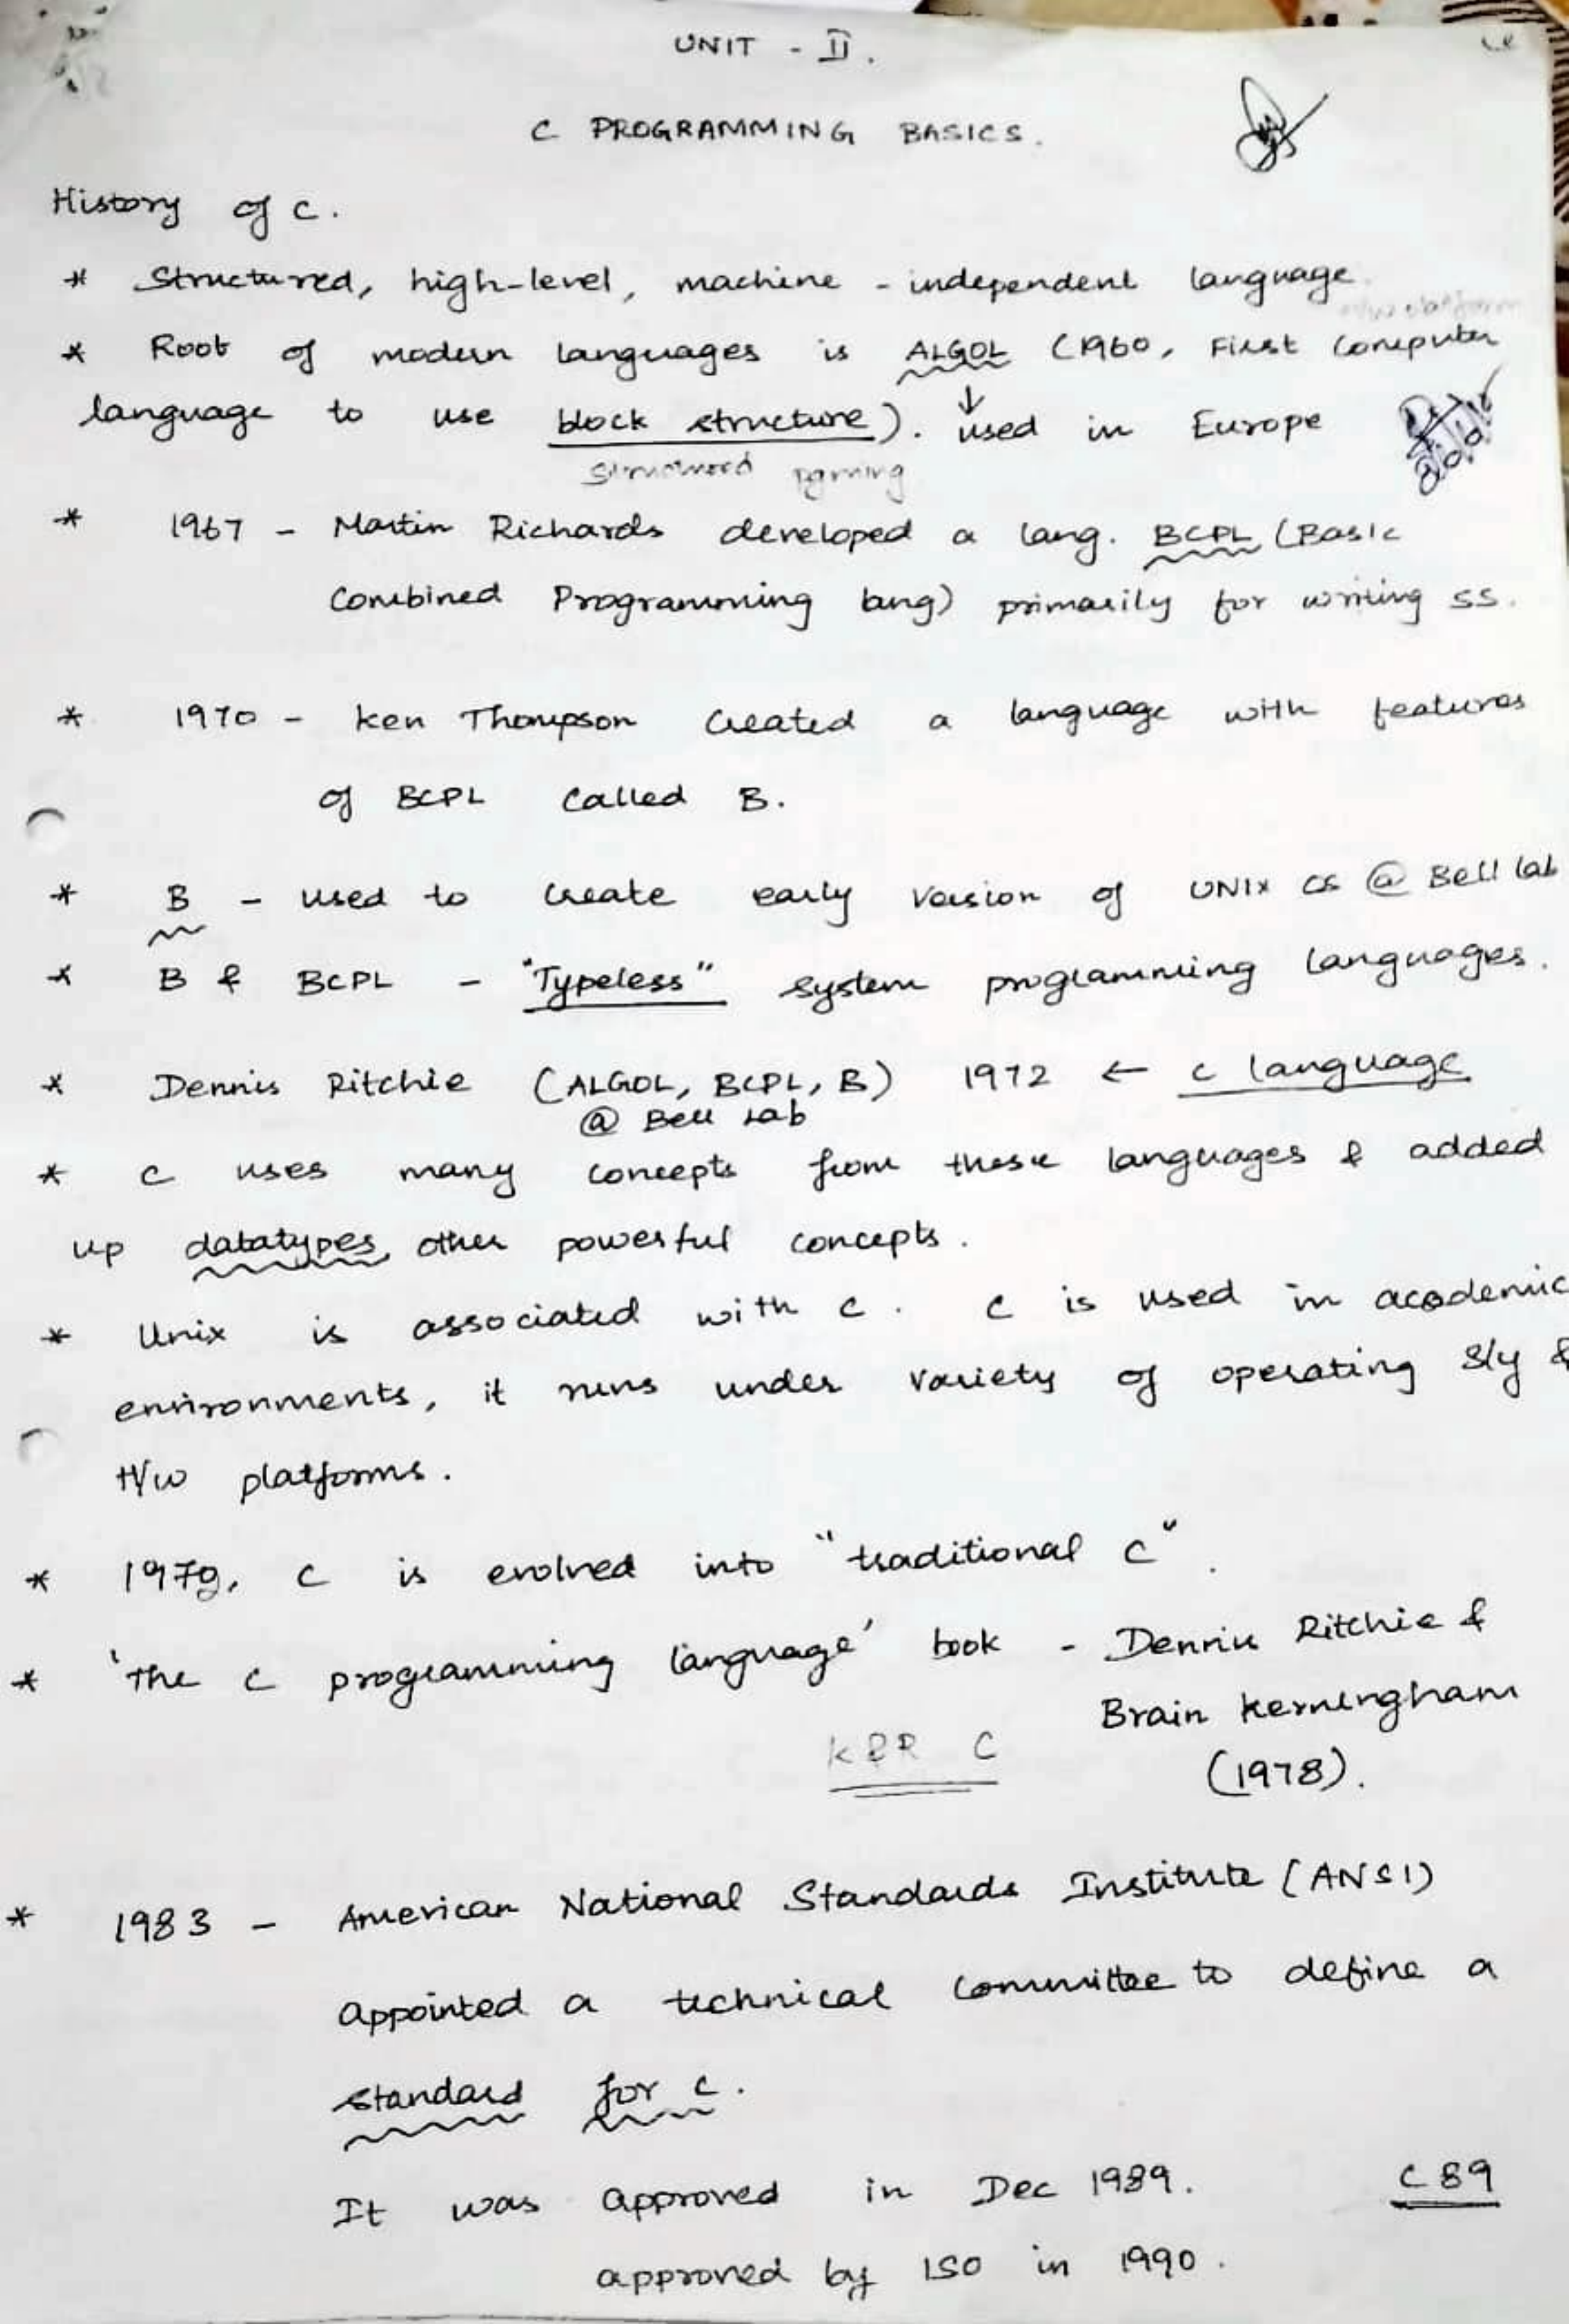 UNIT - II.
C PROGRAMMING BASICS.
History of C.
* Structured, high-level, machine - independent language.
* Root of modern languages is ALGOL (1960, First Computer
language to use block structure). ↓ used in Europe
structured pgming
* 1967 - Martin Richards developed a lang. BCPL (Basic
Combined Programming lang) primarily for writing SS.
* 1970 - Ken Thompson Created a language with features
of BCPL called B.
* B - used to Create early version of UNIX OS @ Bell lab
* B & BCPL - "Typeless" system programming languages.
* Dennis Ritchie (ALGOL, BCPL, B) 1972 ← C language
@ Bell Lab
* C uses many concepts from these languages & added
up datatypes, other powerful concepts.
* Unix is associated with C. C is used in academic
environments, it runs under variety of operating S/y &
H/w platforms.
* 1979, C is evolved into "traditional C".
* 'The C programming language' book - Dennis Ritchie &
Brain Kerningham
K&R C
(1978).
* 1983 - American National Standards Institute (ANSI)
appointed a technical committee to define a
standard for C.
It was approved in Dec 1989. C 89
approved by ISO in 1990.